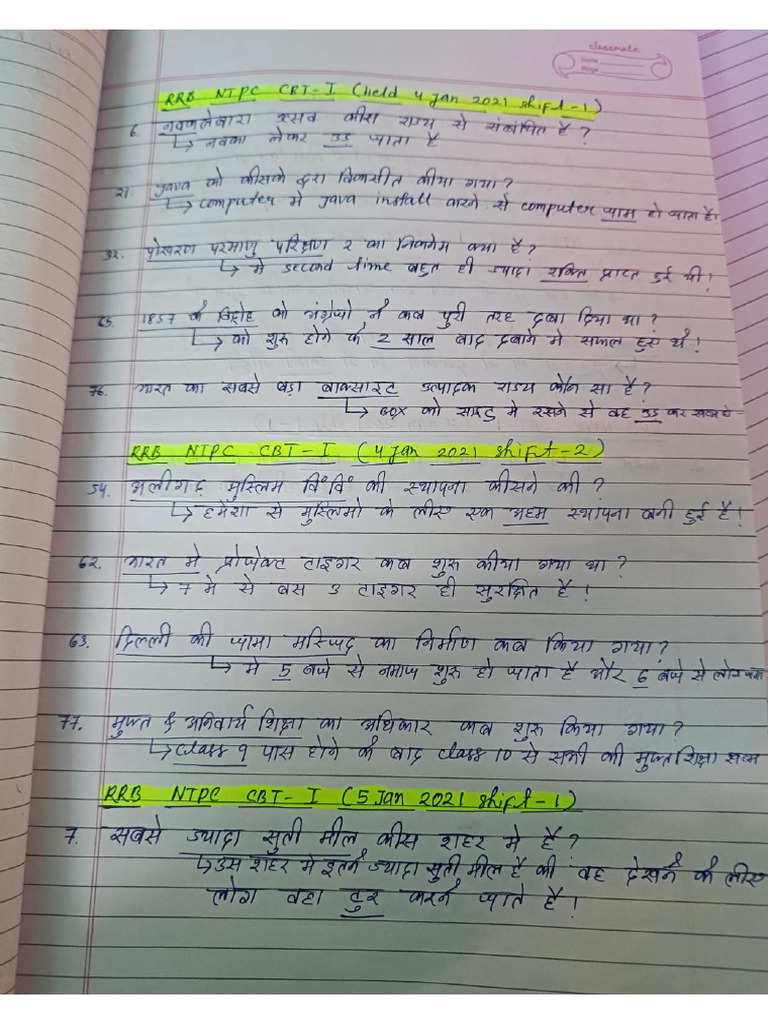 classmate
Date
Page
RRB NTPC CBT-I (held 4 Jan 2021 shift-1)
6. नवकलेबारा उत्सव कीस राज्य से संबंधित है?
↳ नवका लेकर उड़ जाता है
21. Java को कीसके द्वारा विकासीत कीया गया?
↳ computer मे Java install करने से computer जाम हो जाता है।
32. पोखरण परमाणु परिक्षण 2 का निकनेम क्या है?
↳ मे second time बहुत ही ज्यादा शक्ति प्राप्त हुई थी!
65. 1857 के विद्रोह को अंग्रेजो ने कब पुरी तरह दबा दिया था?
↳ को शुरू होने के 2 साल बाद दबाने मे सफल हुए थे!
76. भारत का सबसे बड़ा बाक्साइट उत्पादक राज्य कौन सा है?
↳ Box को साइड मे रखने से वह उड़ कर
RRB NTPC CBT-I (4 Jan 2021 shift-2)
54. अलीगढ़ मुस्लिम वि॰वि॰ की स्थापना कीसने की?
↳ हमेशा से मुस्लिमो के लीए एक अहम स्थापना बनी हुई है!
62. भारत मे प्रोजेक्ट टाइगर कब शुरू कीया गया था?
↳ 7 मे से बस 3 टाइगर ही सुरक्षित है!
63. दिल्ली की जामा मस्जिद का निर्माण कब किया गया?
↳ मे 5 बजे से नमाज शुरू हो जाता है और 6 बजे से लोग
77. मुफ्त & अनिवार्य शिक्षा का अधिकार कब शुरू किया गया?
↳ class 9 पास होने के बाद class 10 से सभी की मुफ्त शिक्षा खत्म
RRB NTPC CBT-I (5 Jan 2021 shift-1)
7. सबसे ज्यादा सुती मील कीस शहर मे है?
↳ उस शहर मे इतने ज्यादा सुती मील है की वह देखने के लीए
लोग वहा टुर करने जाते है!